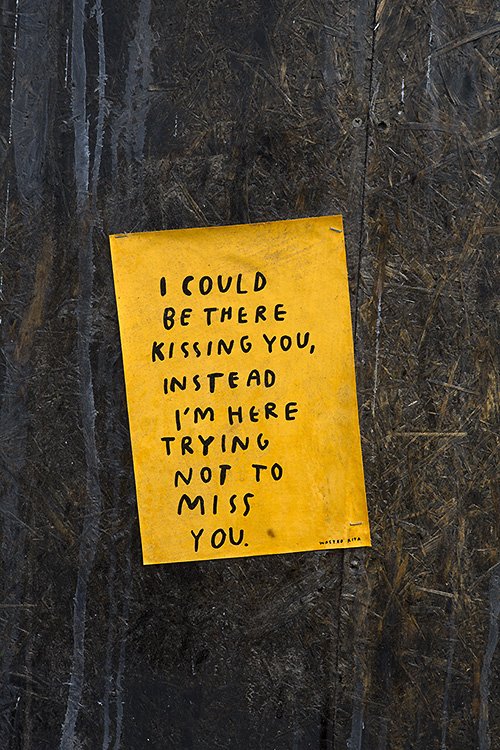 I COULD
BE THERE
KISSING YOU,
INSTEAD
I'M HERE
TRYING
NOT TO
MISS
YOU.
WASTED RITA